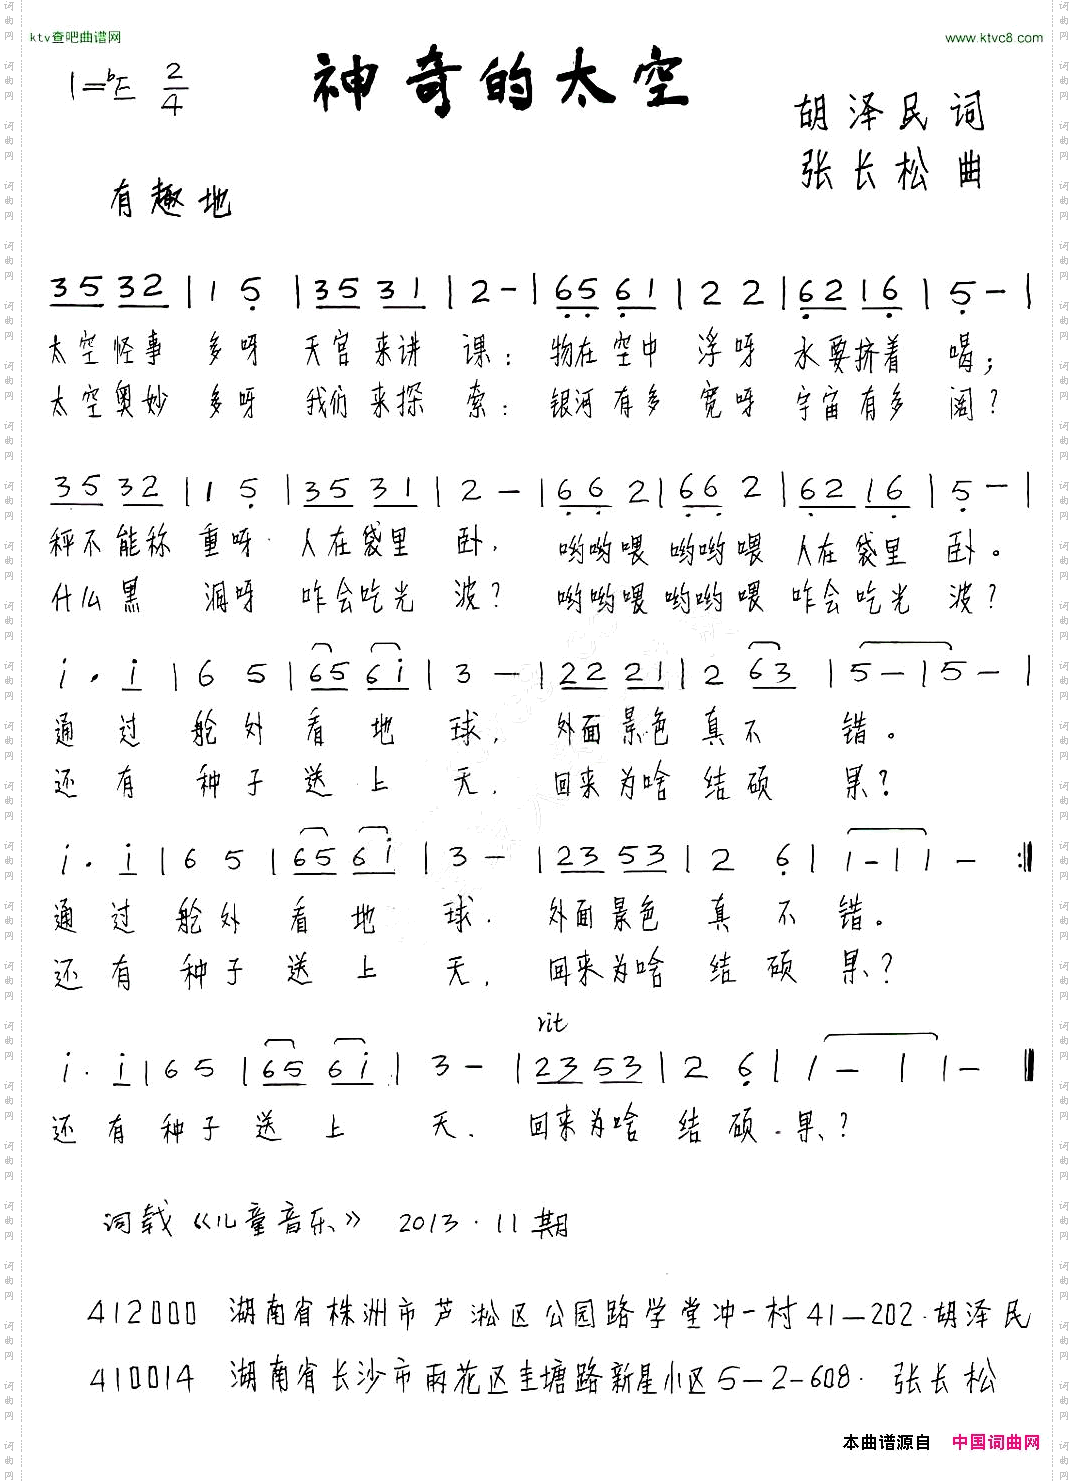 ktv查吧曲谱网
www.ktvc8.com
神奇的太空
1=bE 2/4
胡泽民词
张长松曲
有趣地
35 32 | 1 5 | 35 31 | 2 - | 65 61 | 2 2 | 62 16 | 5 - |
太空怪事 多呀 天宫来讲 课: 物在空中 浮呀 水要挤着 喝;
太空奥妙 多呀 我们来探 索: 银河有多 宽呀 宇宙有多 阔?
35 32 | 1 5 | 35 31 | 2 - | 66 2 | 66 2 | 62 16 | 5 - |
秤不能称 重呀. 人在袋里 卧, 哟哟喂 哟哟喂 人在袋里 卧。
什么黑 洞呀 咋会吃光 波? 哟哟喂 哟哟喂 咋会吃光 波?
i. i | 6 5 | 65 6i | 3 - | 22 21 | 2 63 | 5 - | 5 - |
通 过 舱 外 看 地 球, 外面景色 真 不 错。
还 有 种 子 送 上 天, 回来为啥 结 硕 果?
i. i | 6 5 | 65 6i | 3 - | 23 53 | 2 6 | 1 - | 1 - :‖
通 过 舱 外 看 地 球. 外面景色 真 不 错。
还 有 种 子 送 上 天, 回来为啥 结 硕 果?
rit
i. i | 6 5 | 65 6i | 3 - | 23 53 | 2 6 | 1 - 1 | 1 - ‖
还 有 种 子 送 上 天, 回来为啥 结 硕. 果?
词载《儿童音乐》 2013.11期
412000 湖南省株洲市芦淞区公园路学堂冲一村41—202.胡泽民
410014 湖南省长沙市雨花区圭塘路新星小区5—2—608. 张长松
本曲谱源自 中国词曲网